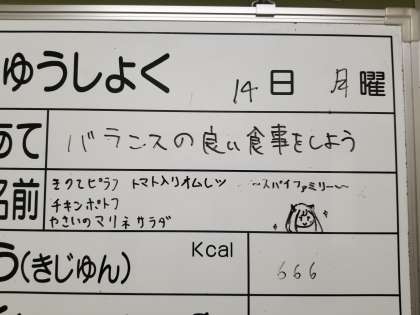 ゅうしょく 14日 月曜
めて バランスの良い食事をしよう
名前 そのてピラフ トマト入りオムレツ ~スパイファミリー~
チキンポトフ
やさいのマリネサラダ
う(きじゅん) Kcal 666